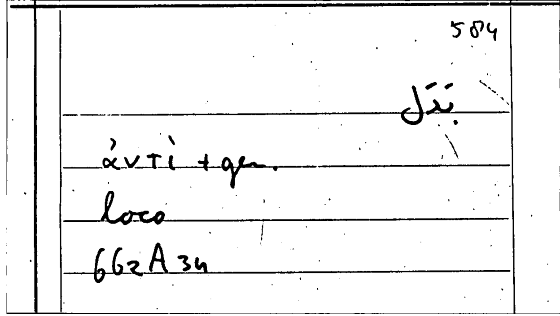 584
بَدَل
ἀντὶ + gen.
loco
662A34